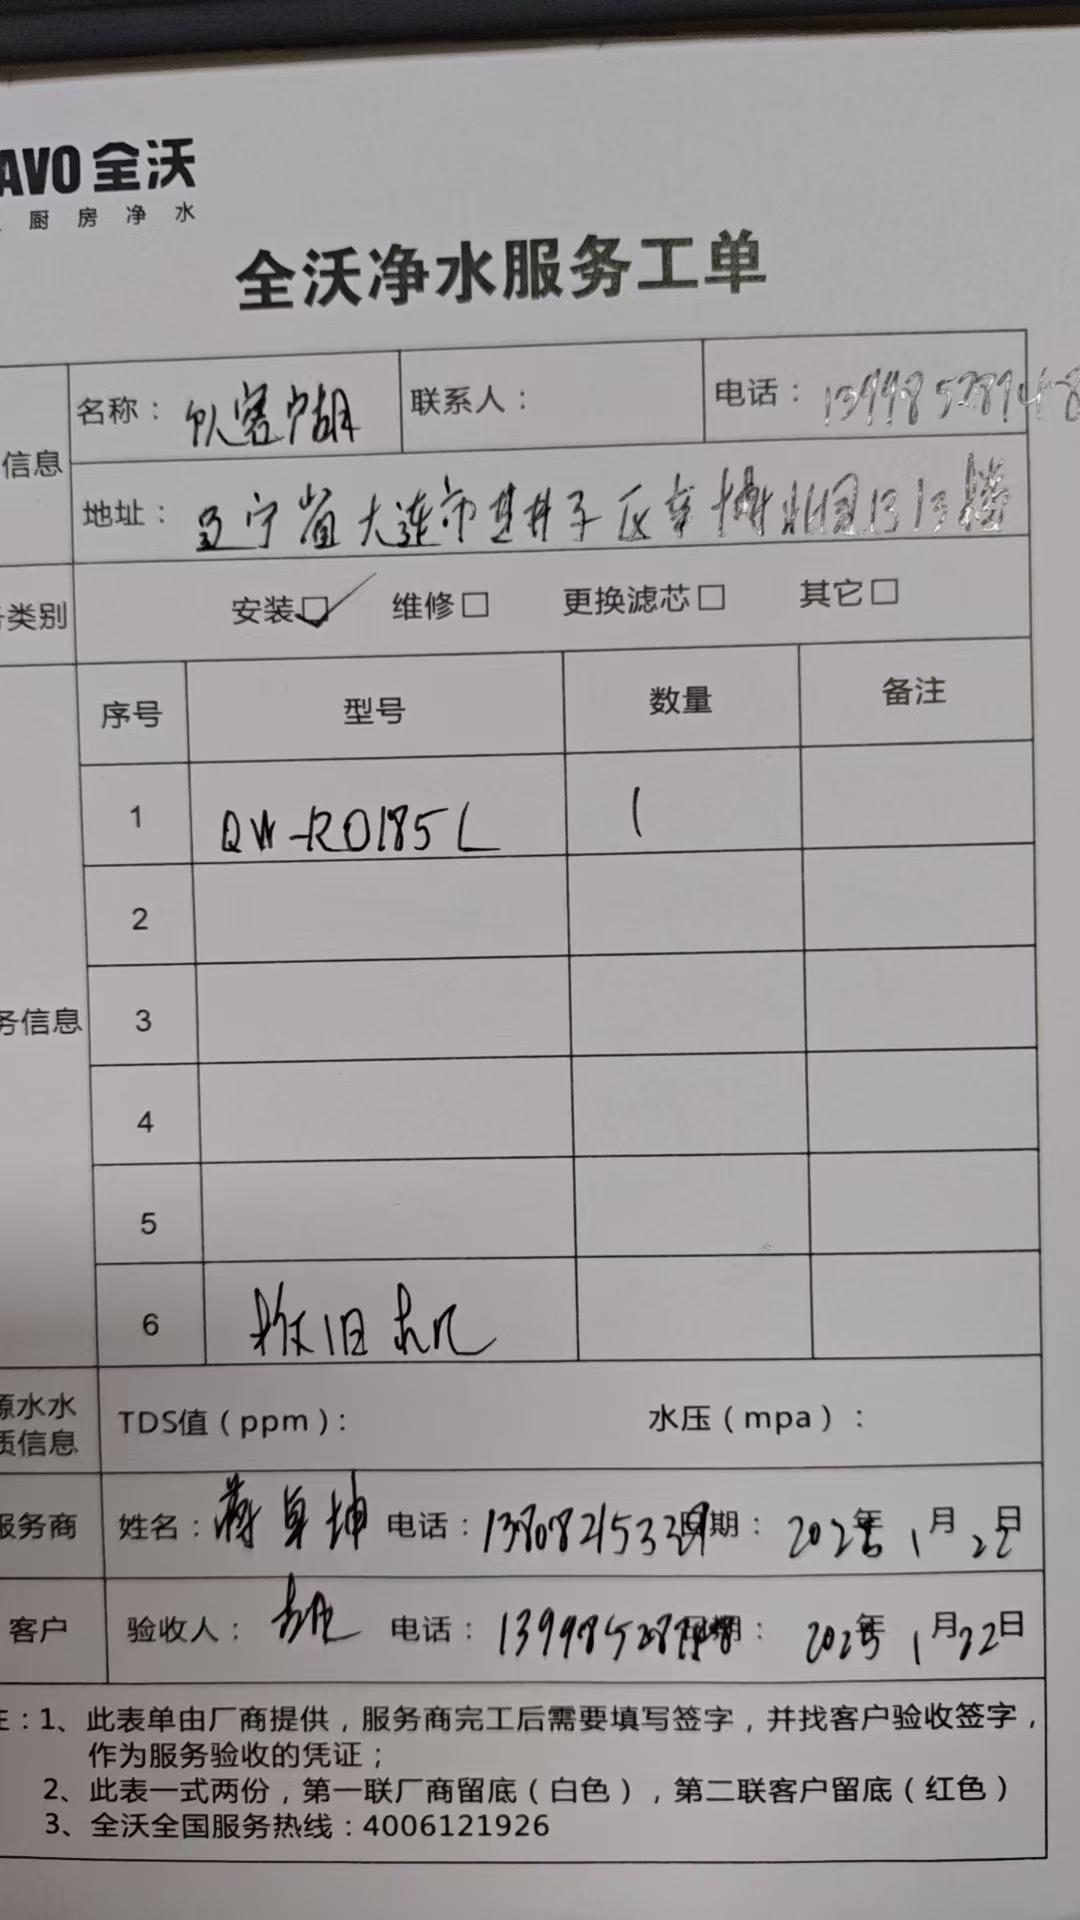 AVO 全沃
厨房净水
全沃净水服务工单
信息
名称： 客户胡
联系人：
电话： 13998528948
地址： 辽宁省大连市甘井子区 园1313楼
类别
安装☑ 维修□ 更换滤芯□ 其它□
序号 型号 数量 备注
1 QW-RO185L 1
2
务信息
3
4
5
6 拆旧机
源水水
质信息
TDS值（ppm）： 水压（mpa）：
服务商
姓名：蒋卓坤 电话： 日期： 2025年1月22日
客户
验收人： 电话： 日期： 2025年1月22日
注：1、此表单由厂商提供，服务商完工后需要填写签字，并找客户验收签字，
作为服务验收的凭证；
2、此表一式两份，第一联厂商留底（白色），第二联客户留底（红色）
3、全沃全国服务热线：4006121926